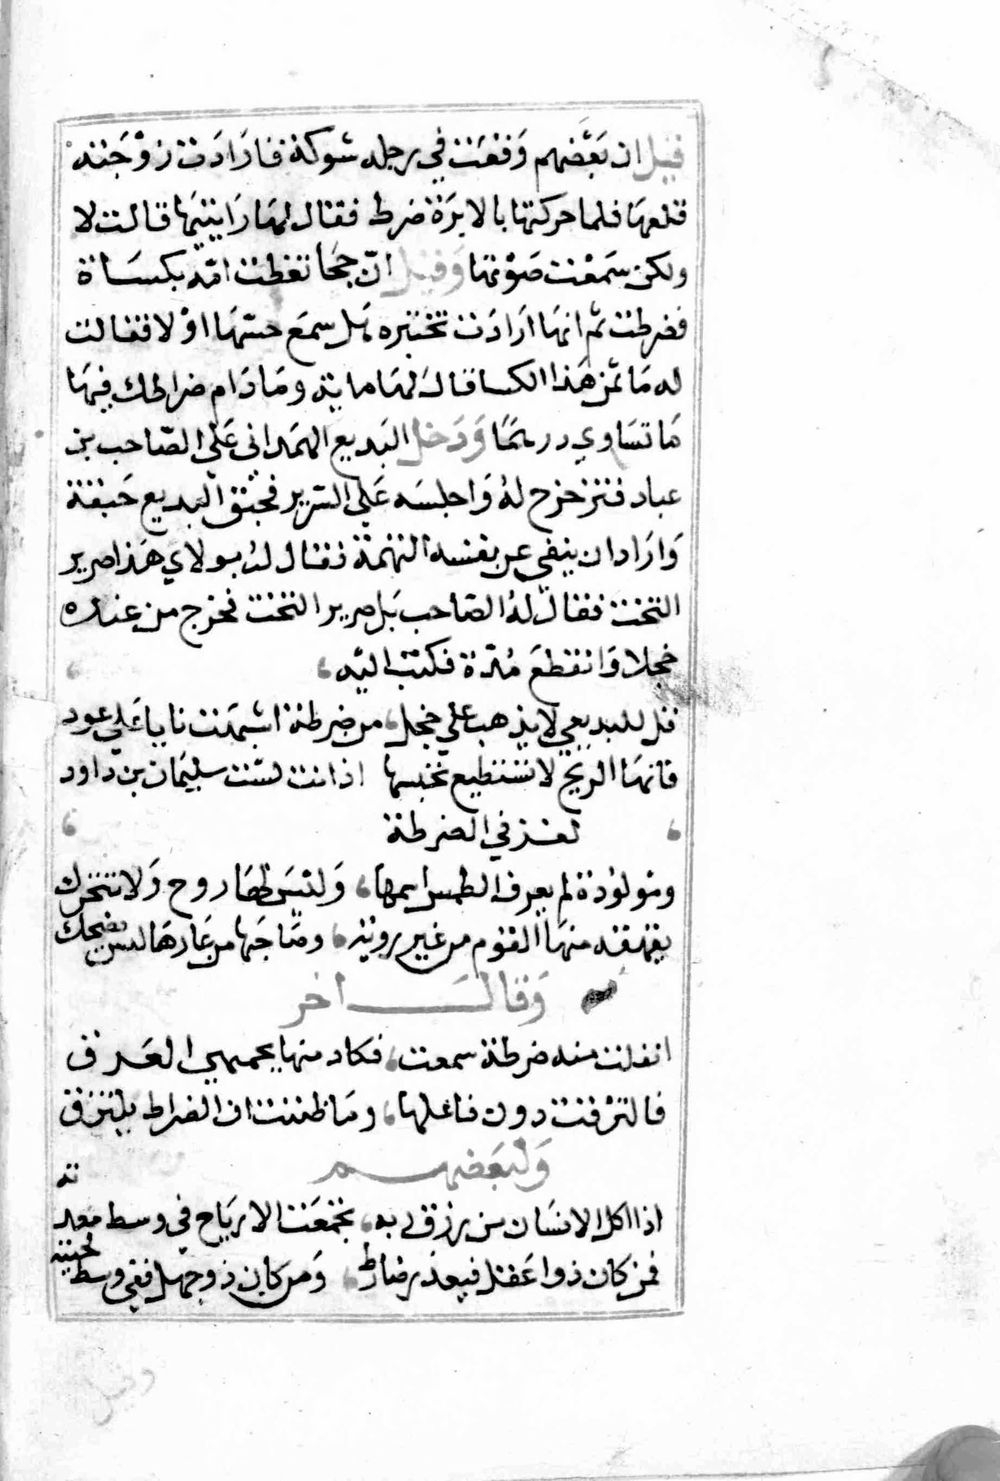 قيل ان بعضهم وقعت في رجله شوكة فارادت زوجته
قلعها فلما حركتها بالابرة ضرط فقال لها رايتيها قالت لا
ولكن سمعت صوتها وقيل ان جحا تغطت امه بكساة
فضرطت ثم انها ارادت تختبره هل سمع حسها اولا فقالت
له ما ثمن هذا الكسا قال لها ماية وما دام ضراطك فيها
ما تساوي درهما ودخل البديع الهمداني على الصاحب بن
عباد فتزحزح له واجلسه على السرير فحبق البديع حبقة
واراد ان ينفي عن نفسه التهمة فقال له يمولاي هذا صرير
التخت فقال له الصاحب بل صرير التحت فخرج من عنده
خجلا وانقطع مدة فكتب اليه
قل للبديعي لا يذهب على خجل من ضرطة اشبهت نايا على عود
فانها الريح لا تستطيع تحبسها اذ انت لست سليمان بن داود
لغز في الضرطة
ومولودة لم يعرف الطمس امها وليس لها روح ولا تتحرك
يقهقه منها القوم من غير روية وصاحبها من عارها ليس يضحك
وقال اخر
انفلتت منه ضرطة سمعت فكاد منها يحميهي العرق
فالتزقت دون فاعلها وما ظننت ان الضراط يلتزق
ولبعضهم
اذا اكل الانسان من رزق ربه تجمعت الارياح في وسط معدته
فمن كان ذوا عقل فيعذر ضارطا ومن كان ذو جهل ففي وسط لحيته
وقيل